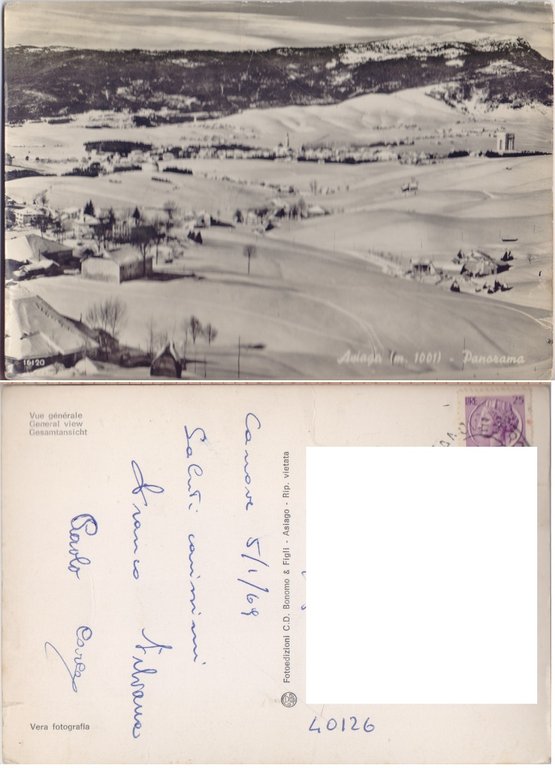 16120
Asiago (m. 1001) - Panorama
Vue générale
General view
Gesamtansicht
Canove 5/1/69
Saluti carissimi
Franco Silvana
Paolo
Fotoedizioni C.D. Bonomo & Figli - Asiago - Rip. vietata
Vera fotografia
40126